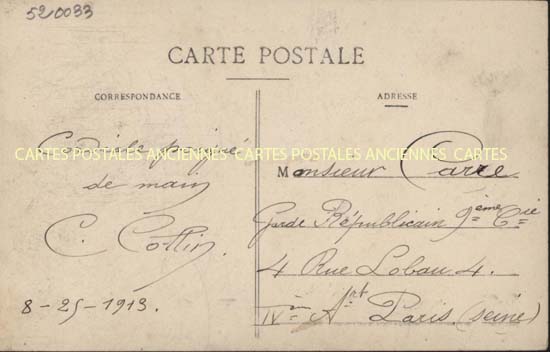 520033
CARTE POSTALE
CORRESPONDANCE
ADRESSE
Cordiale poignée
de main
C. Cottin
8-25-1913.
CARTES POSTALES ANCIENNES CARTES POSTALES ANCIENNES CARTES
Monsieur Carre
Garde Républicain 9ème Cie
4 Rue Lobau 4.
IVm Art Paris (Seine)